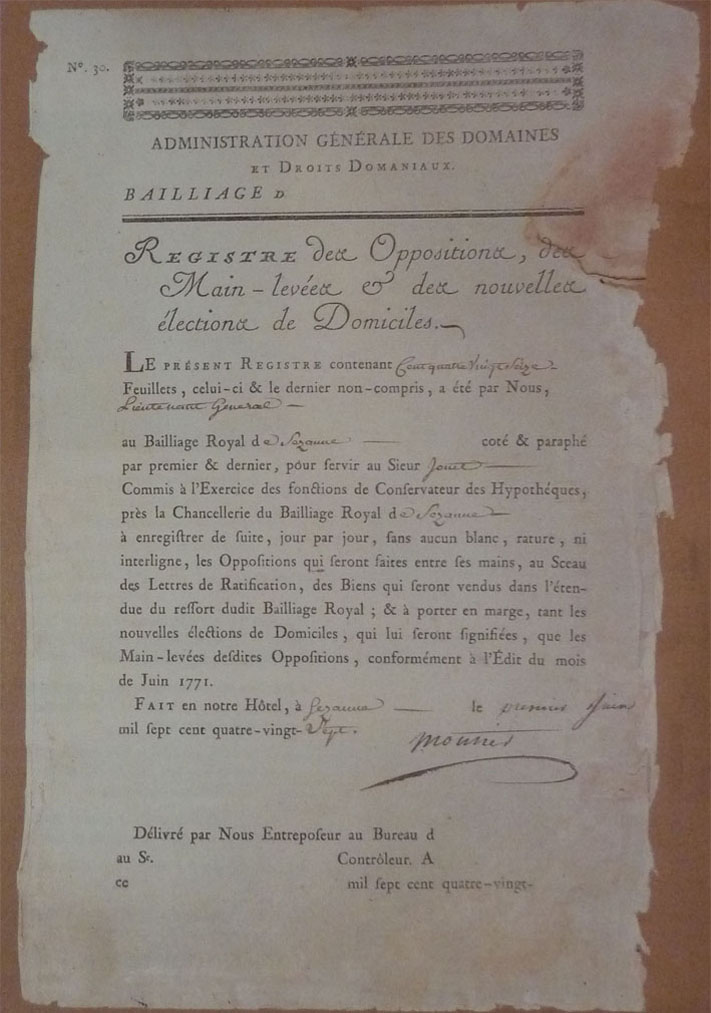 N°. 30.
ADMINISTRATION GÉNÉRALE DES DOMAINES
ET DROITS DOMANIAUX.
BAILLIAGE D
REGISTRE des Oppositions, des
Main-levées & des nouvelles
élections de Domiciles.
LE PRÉSENT REGISTRE contenant Cent quatre Vingt Seize
Feuillets, celui-ci & le dernier non-compris, a été par Nous,
Lieutenant General
au Bailliage Royal de Sezanne coté & paraphé
par premier & dernier, pour servir au Sieur
Commis à l'Exercice des fonctions de Conservateur des Hypothéques,
près la Chancellerie du Bailliage Royal de Sezanne
à enregistrer de suite, jour par jour, sans aucun blanc, rature, ni
interligne, les Oppositions qui seront faites entre ses mains, au Sceau
des Lettres de Ratification, des Biens qui seront vendus dans l'éten-
due du ressort dudit Bailliage Royal ; & à porter en marge, tant les
nouvelles élections de Domiciles, qui lui seront signifiées, que les
Main-levées desdites Oppositions, conformément à l'Édit du mois
de Juin 1771.
FAIT en notre Hôtel, à Sezanne le premier Juin
mil sept cent quatre-vingt-Sept.
Délivré par Nous Entreposeur au Bureau d
au Sr. Contrôleur. A
ce mil sept cent quatre-vingt-